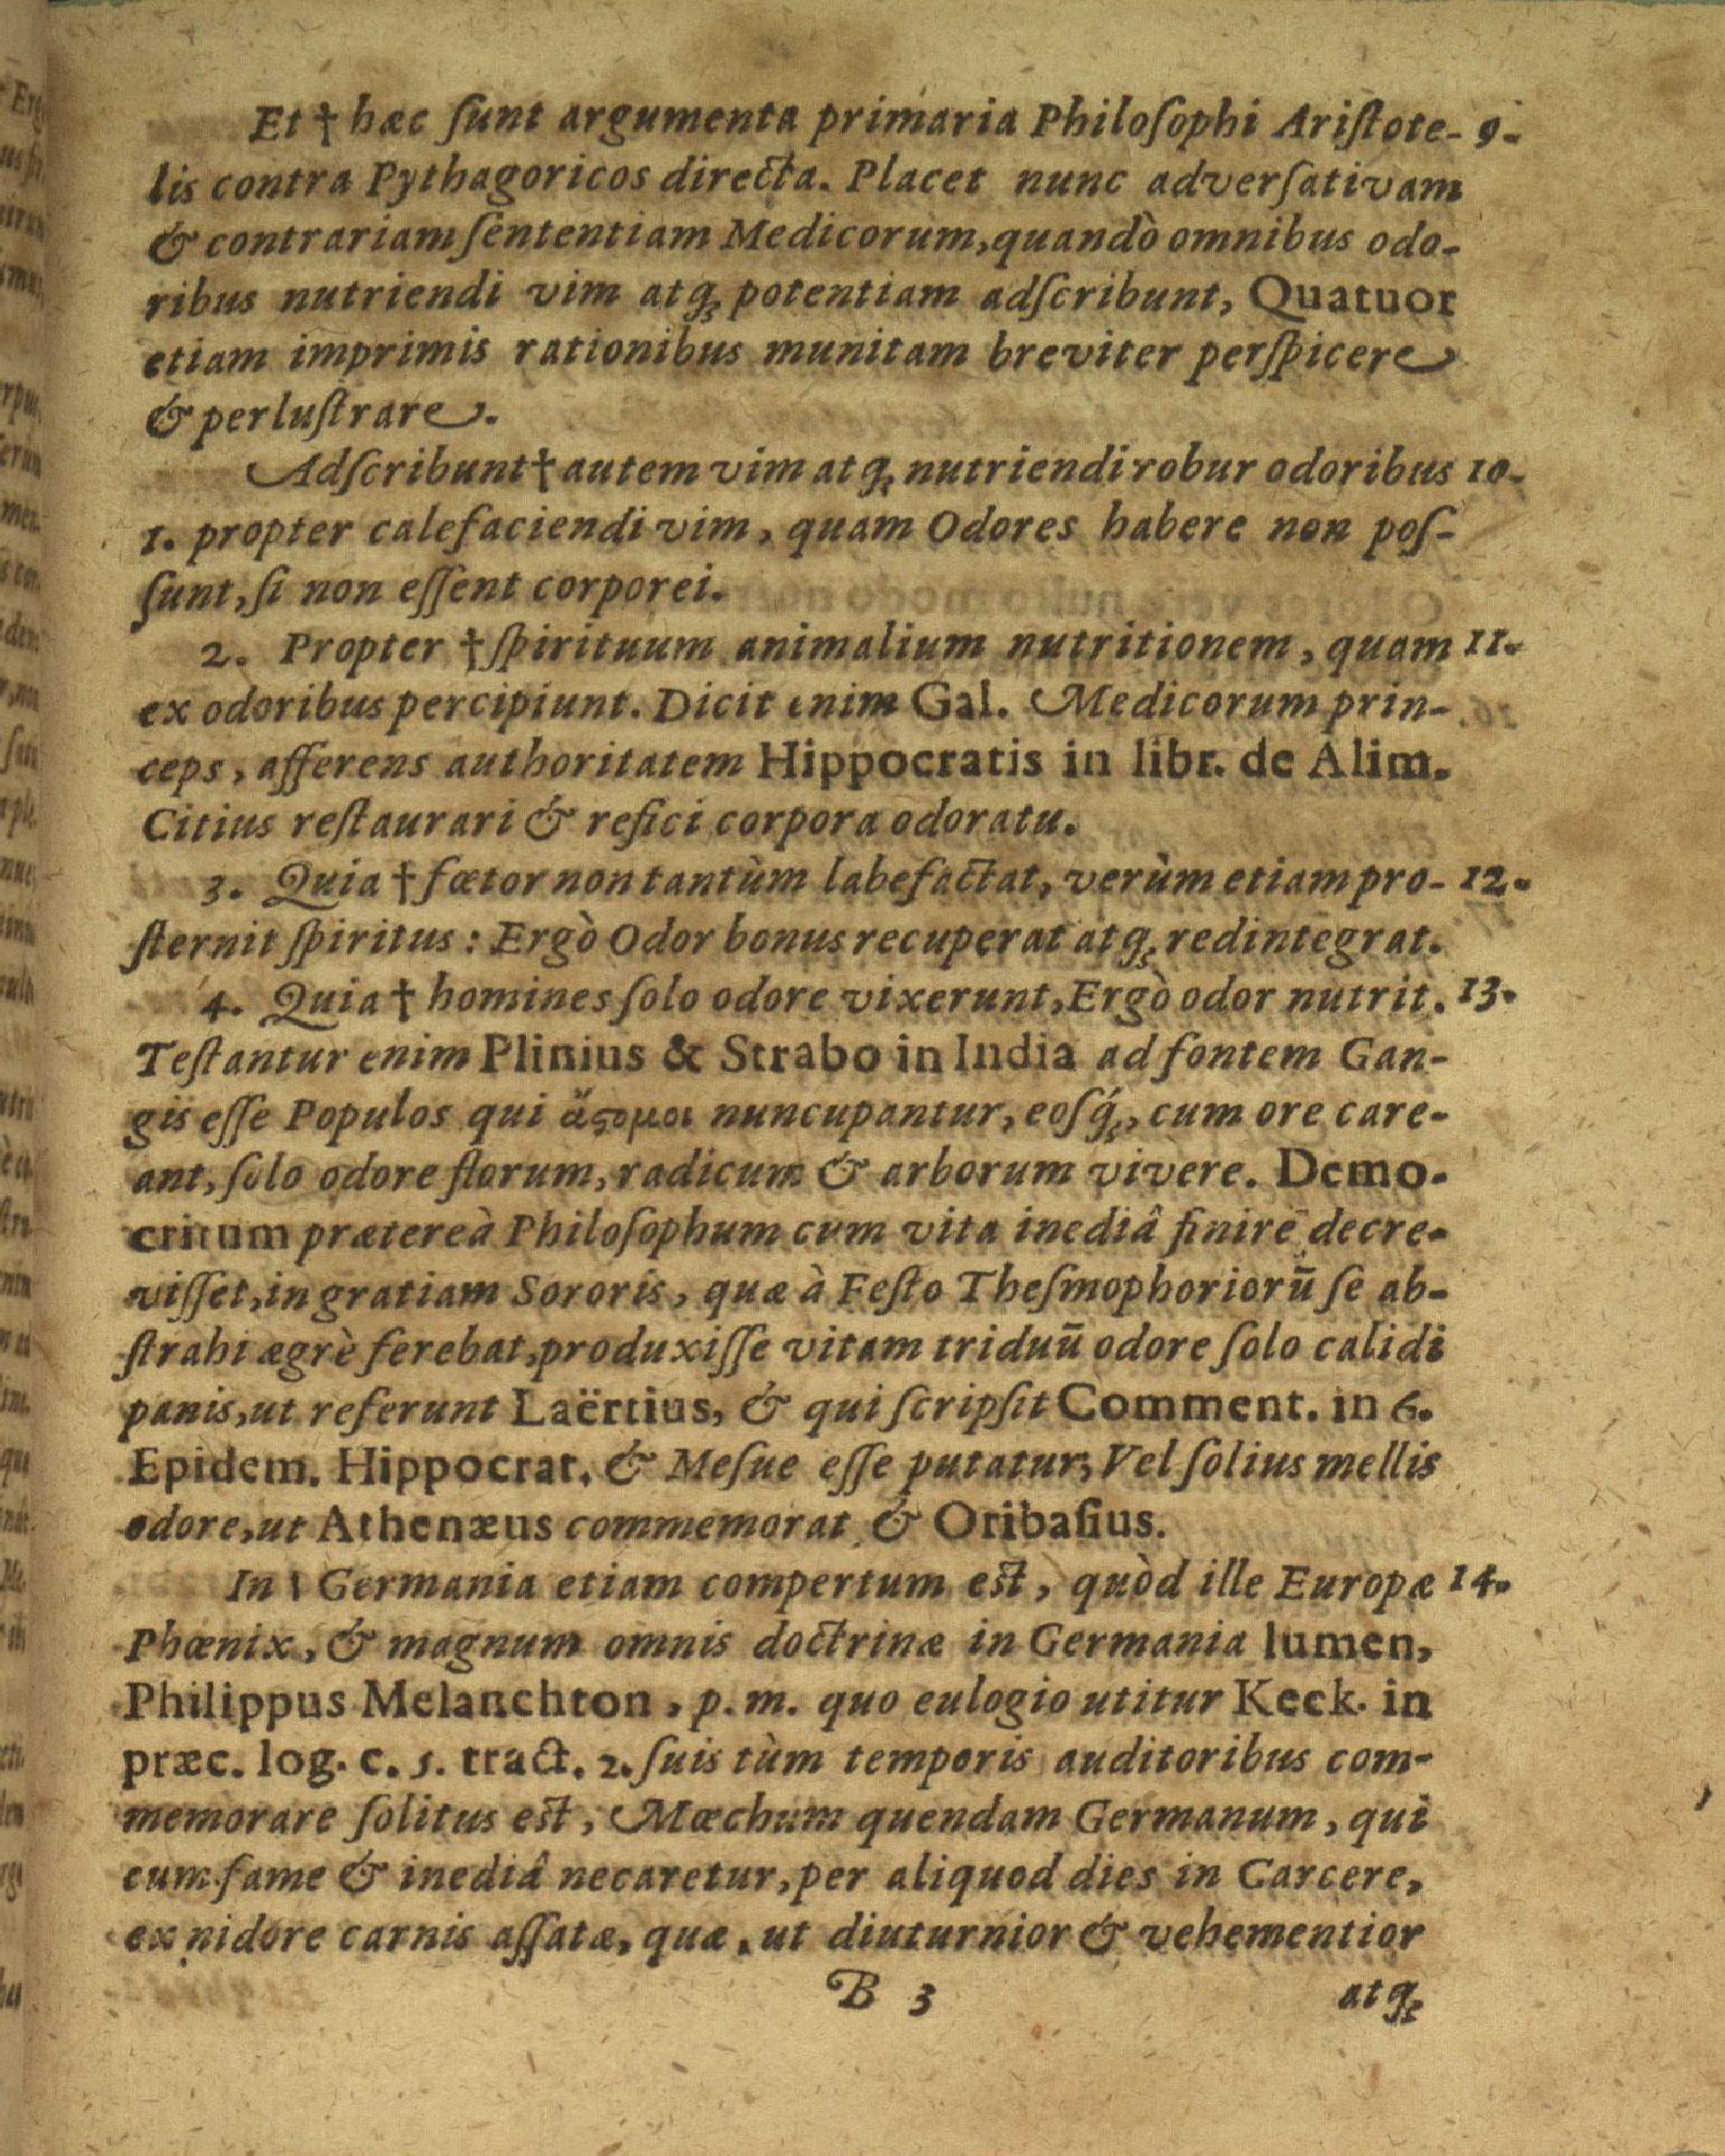 Et † hæc ſunt argumenta primaria Philoſophi Ariſtote- 9.
lis contra Pythagoricos directa. Placet nunc adverſativam
& contrariam ſententiam Medicorum, quandò omnibus odo-
ribus nutriendi vim atq; potentiam adſcribunt, Quatuor
etiam imprimis rationibus munitam breviter perſpicere
& perluſtrare.
Adſcribunt † autem vim atq; nutriendi robur odoribus 10.
1. propter calefaciendi vim, quam Odores habere non poſ-
ſunt, ſi non eſſent corporei.
2. Propter † ſpirituum animalium nutritionem, quam 11.
ex odoribus percipiunt. Dicit enim Gal. Medicorum prin-
ceps, afferens authoritatem Hippocratis in libr. de Alim.
Citius reſtaurari & refici corpora odoratu.
3. Quia † fœtor non tantùm labefactat, verùm etiam pro- 12.
ſternit ſpiritus: Ergò Odor bonus recuperat atq; redintegrat.
4. Quia † homines ſolo odore vixerunt, Ergò odor nutrit. 13.
Teſtantur enim Plinius & Strabo in India ad fontem Gan-
gis eſſe Populos qui ἄϛομοι nuncupantur, eoſq́;, cum ore care-
ant, ſolo odore florum, radicum & arborum vivere. Demo-
critum prætereà Philoſophum cum vita inediâ finire decre-
viſſet, in gratiam Sororis, quæ à Feſto Theſmophoriorū ſe ab-
ſtrahi ægrè ferebat, produxiſſe vitam triduū odore ſolo calidi
panis, ut referunt Laërtius, & qui ſcripſit Comment. in 6.
Epidem. Hippocrat. & Meſue eſſe putatur; Vel ſolius mellis
odore, ut Athenæus commemorat & Oribaſius.
In † Germania etiam compertum eſt, quòd ille Europæ 14.
Phœnix, & magnum omnis doctrinæ in Germania lumen,
Philippus Melanchton, p. m. quo eulogio utitur Keck. in
præc. log. c. 5. tract. 2. ſuis tùm temporis auditoribus com-
memorare ſolitus eſt, Mœchum quendam Germanum, qui
cum fame & inediâ necaretur, per aliquod dies in Carcere,
ex nidore carnis aſſatæ, quæ, ut diuturnior & vehementior
B 3 atq;